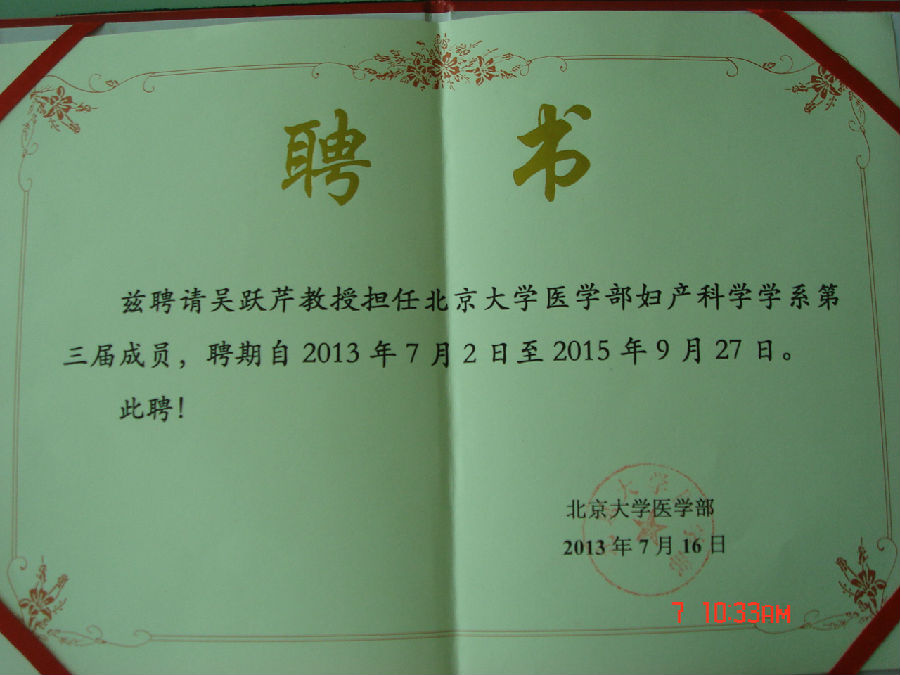 聘 书
兹聘请吴跃芹教授担任北京大学医学部妇产科学学系第
三届成员，聘期自 2013 年 7 月 2 日至 2015 年 9 月 27 日。
此聘！
北京大学医学部
2013 年 7 月 16 日
7 10:33AM